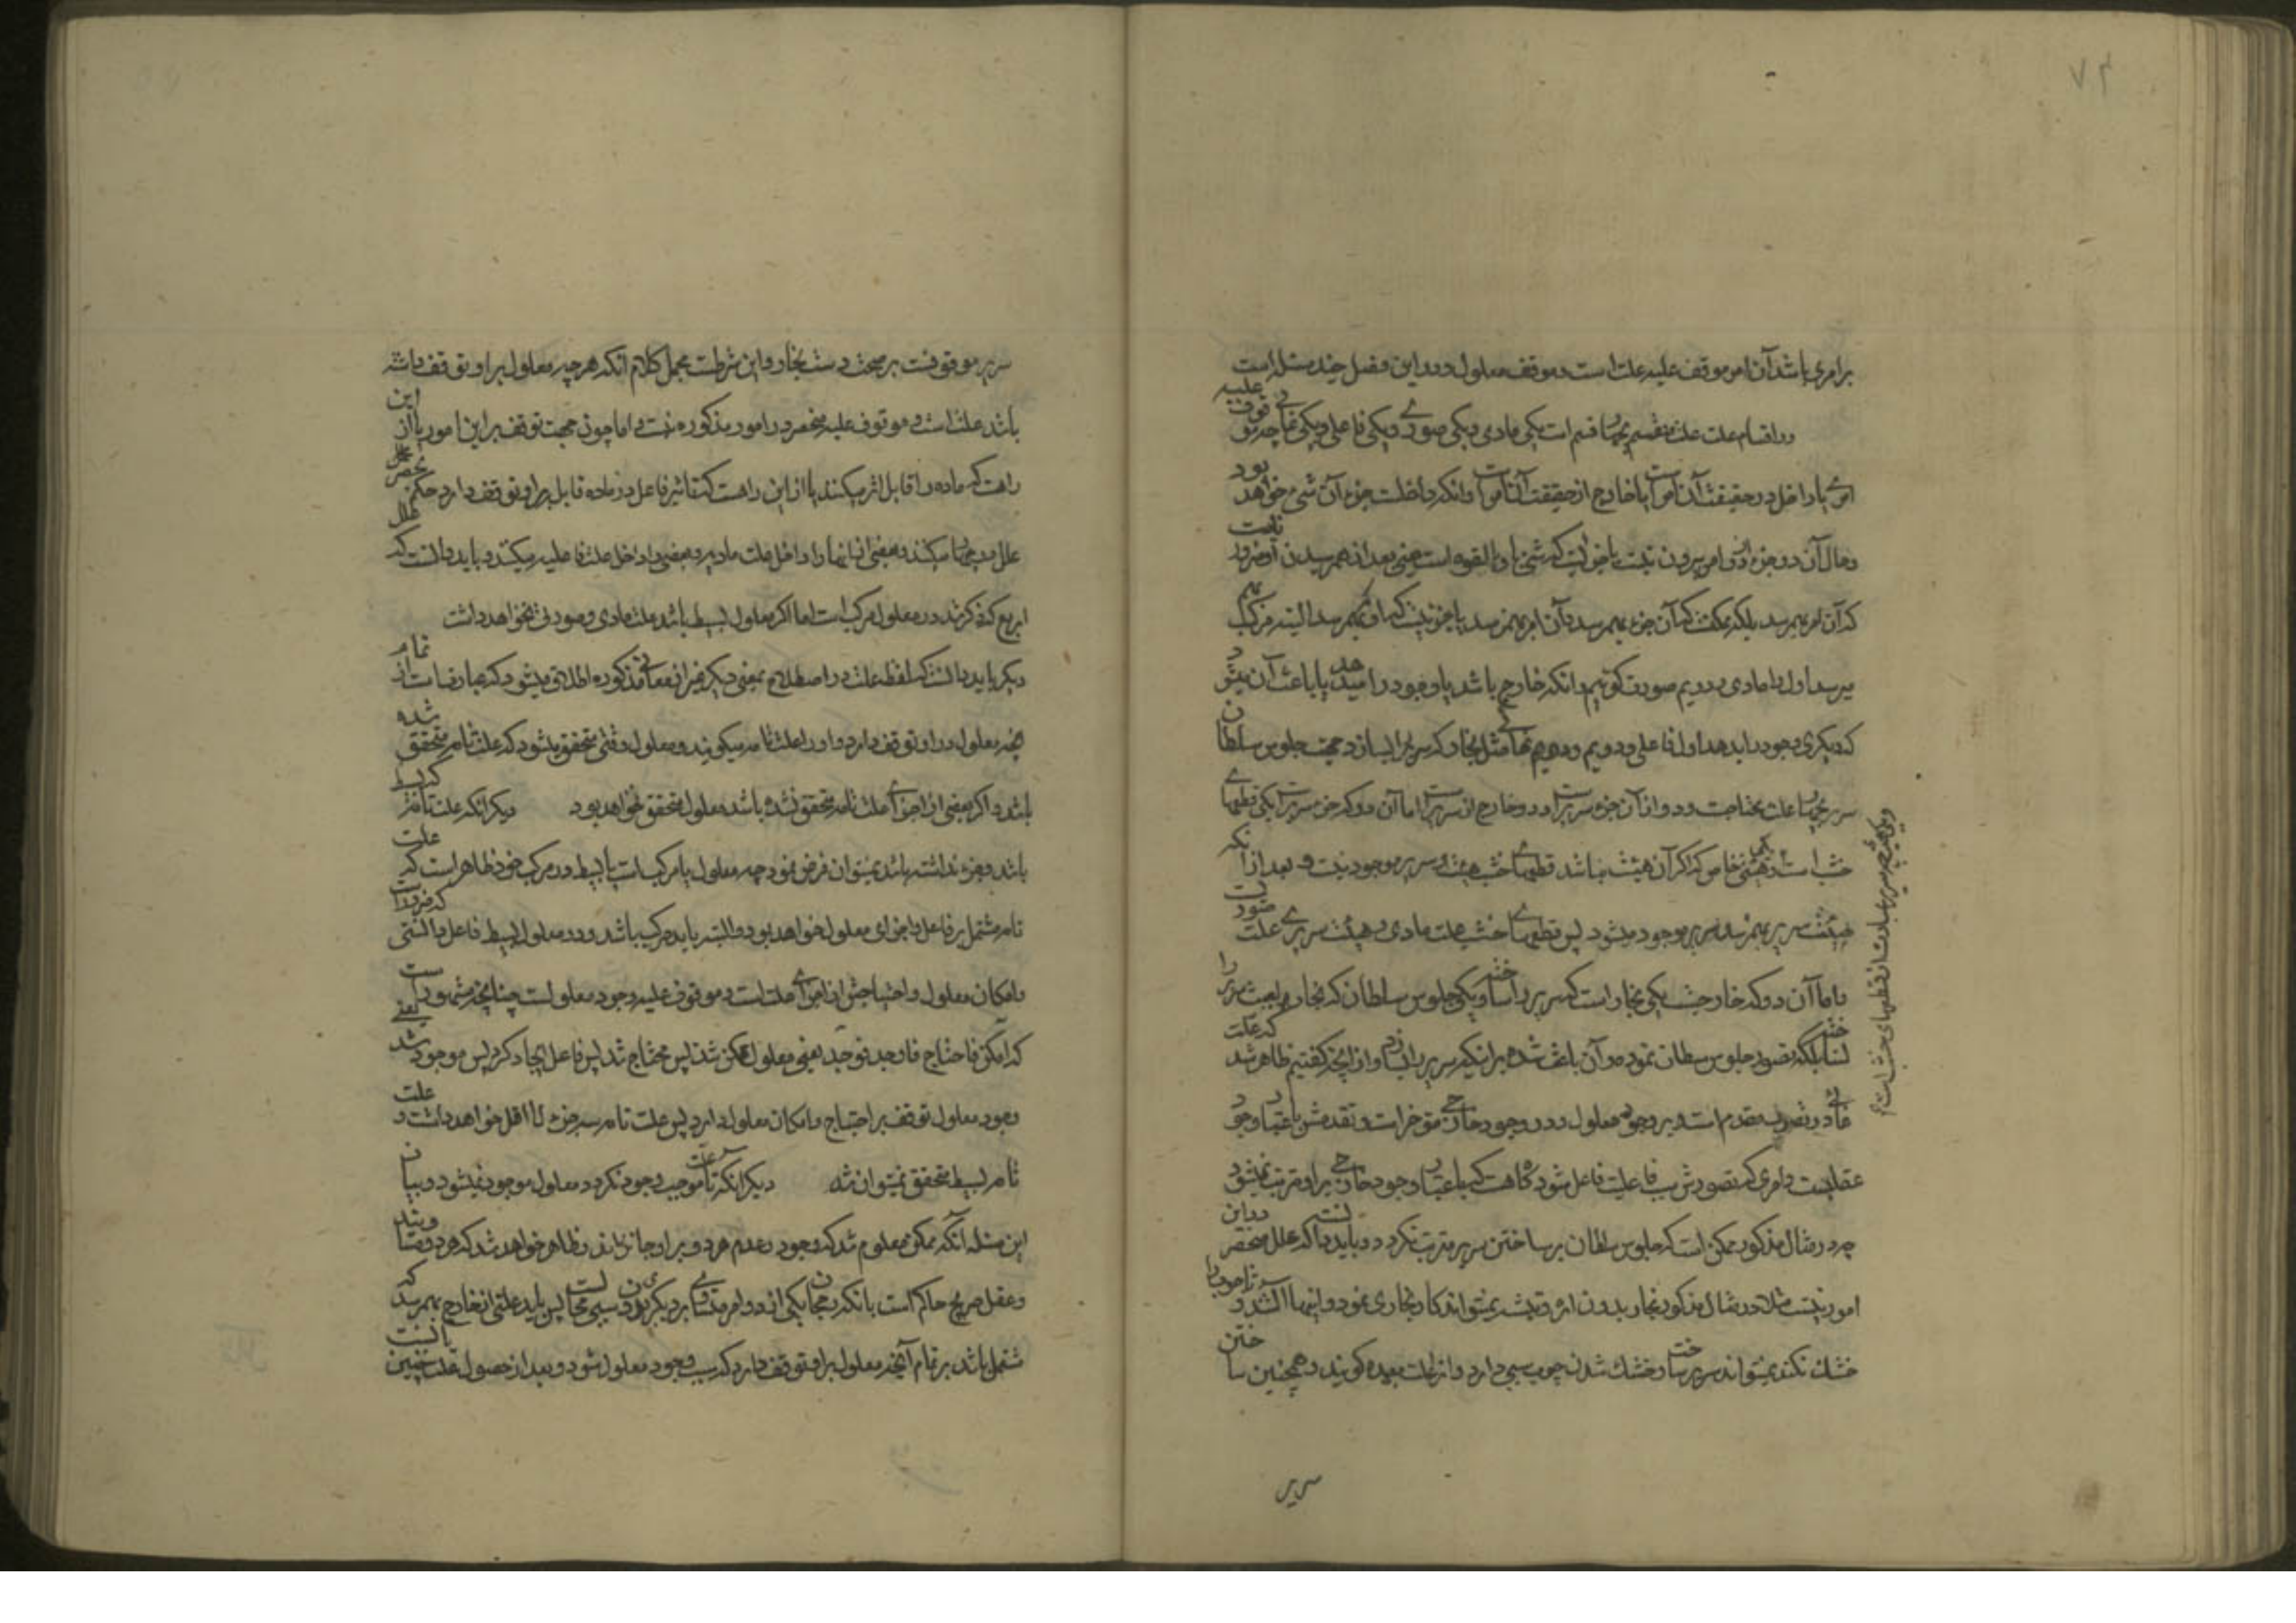 ۷۴
برامری باشد آن امر موقوف علیه علت است و موقوف معلول و در این فصل چند مسئله است
در اقسام علت علت منقسم بچهار قسم است یکی مادی و یکی صوری و یکی فاعلی و یکی غایی چه موقوف علیه
امری یا داخل در حقیقت آن امر است یا خارج از حقیقت آن امر است و آنکه داخلست جزء آن شیء خواهد بود
و حال آن دو جزء از دو امر بیرون نیست یا جزئیست که شیء با او بالقوه است یعنی بعد از بهم رسیدن او ضرور نیست
که آن امر بهم رسد بلکه ممکنست که آن جزء بهم رسد و آن امر بهم نرسد یا جزئیست که هر گاه او بهم رسد البته مرکب بهم
میرسد اول را مادی و دویم صورت گوییم و آنکه خارج باشد یا وجود را میدهد یا باعث آن میشود
که دیگری وجود را بدهد اول فاعلی و دویم غائی مثل نجار که سریر را بسازد جهت جلوس سلطان
سریر بچهار علت محتاجست و دو از آن جزء سریر است و دو خارج از سریر است اما آن دو که جزء سریر است یکی قطعهای
خشب است و یکی هیئتی خاص که اگر آن هیئت نباشد قطعهای خشب هست و سریر موجود نیست و بعد از آنکه
هیئت سریر بهم رسد سریر موجود میشود پس قطعهای خشب علت مادی و هیئت سریری علت صوریست
و اما آن دو که خارجست یکی نجار است که سریر را ساخته و یکی جلوس سلطان که نجار بجهت سریر را
ساخته بلکه تصور جلوس سلطان نموده و آن باعث شده بر اینکه سریر را بسازد و از آنچه گفتیم ظاهر شد که علت
غائی در تصور مقدم است و بر وجود معلول و در وجود خارجی مؤخر است و تقدمش باعتبار وجود
عقلیست و امری که تصورش سبب فاعلیت فاعل شود گاه هست که باعتبار وجود خارجی بر او مترتب نمیشود
چه در مثال مذکور ممکن است که جلوس سلطان بر ساختن سریر مترتب نگردد و باید دانست که علل منحصر در این
امور نیست مثلا در مثال مذکور نجار بدون اره و تیشه نمیتواند کار نجاری نمود و اینها آلتند و تا چوب را
خشک نکند نمیتواند سریر ساخت و خشک شدن چوب سببی دارد و آنرا علت معده گویند و همچنین ساختن
سریر
سریر موقوفست بر صحت دست نجار و این شرطست مجمل کلام آنکه هر چه معلول بر او توقف داشته
باشد علت است و موقوف علیه منحصر در امور مذکوره نیست و اما چون جهت توقف بر این امور یا از این
راهست که ماده را قابل اثر میکنند یا از این راهست که تاثیر فاعل در ماده قابل بر او توقف دارد حکم بحصر
علل در چهار میکنند و بعضی از اینها را داخل علت مادیه و بعضی را داخل علت فاعلیه میکنند و باید دانست که علل
اربع که ذکر شد در معلول مرکب است اما اگر معلول بسیط باشد علت مادی و صوری نخواهد داشت
دیگر باید دانست که لفظ علت در اصطلاح بمعنی دیگر غیر از معانی مذکوره اطلاق میشود که عبارتست از تمام
آنچه معلول بر او توقف دارد و او را علت تامه میگویند و معلول وقتی متحقق میشود که علت تامه متحقق شده
باشد و اگر بعضی از اجزای علت تامه متحقق نشده باشد معلول متحقق نخواهد بود دیگر آنکه علت تامه که بسیط
باشد و جزء نداشته باشد نمیتوان فرض نمود چه معلول یا مرکب است یا بسیط و در مرکب خود ظاهر است که علت
تامه مشتمل بر فاعل و اجزای معلول خواهد بود و البته باید مرکب باشد و در معلول بسیط فاعل
و امکان معلول و احتیاجش از اجزای علت است و موقوف علیه وجود معلول است چنانچه مشهور است
که امکن فاحتاج فاوجد فوجد یعنی معلول ممکن شد پس محتاج شد پس فاعل ایجاد کرد پس موجود شد یعنی
وجود معلول توقف بر احتیاج و امکان معلول دارد پس علت تامه سه جزء لا اقل خواهد داشت و علت
تامه بسیط متحقق نمیتواند شد دیگر آنکه تا علت موجب وجود نگردد معلول موجود نمیشود و بیان
این مسئله آنکه ممکن معلوم شد که وجود و عدم هر دو بر او جایز باشد و ظاهر خواهد شد که هر دو متساویند
و عقل صریح حاکم است بآنکه رجحان یکی از دو امر متساوی بر دیگری بدون سببی محالست پس باید علتی از خارج بهم رسد که
مشتمل باشد بر تمام آنچه معلول بر او توقف دارد که سبب وجود معلول شود و بعد از حصول علت چنین